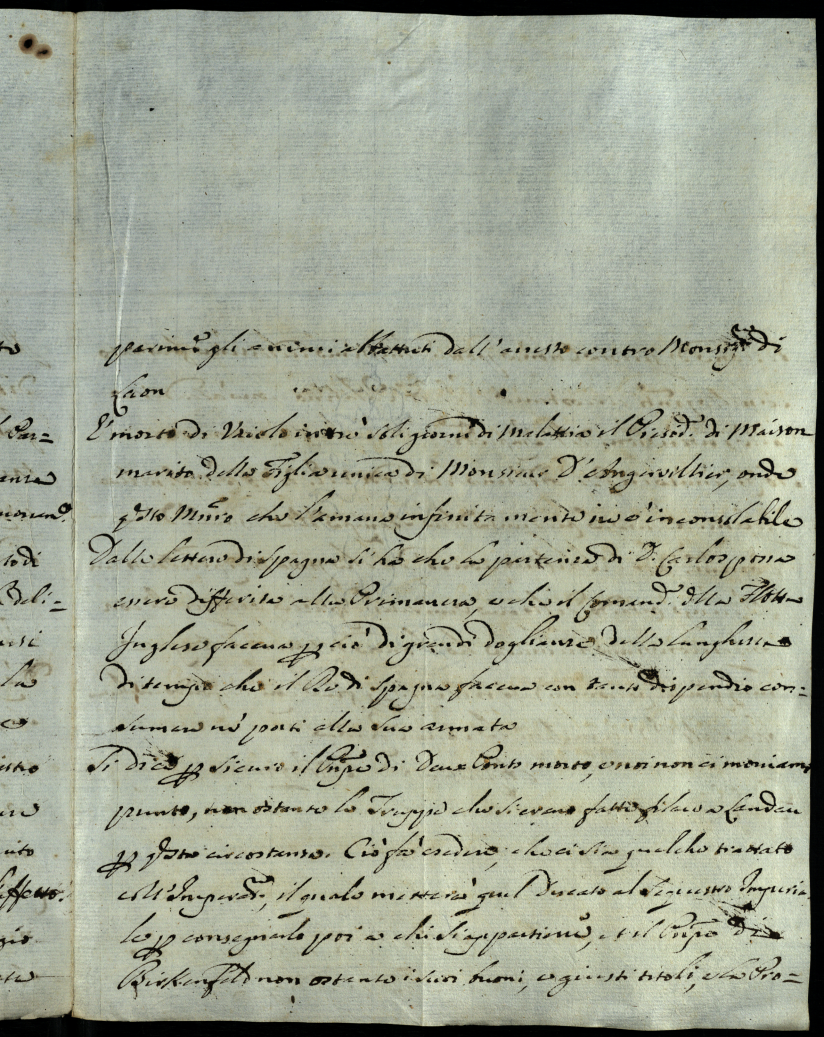 to
parim.te gli animi abbattuti dall'arresto contro Monsig.re di
Laon
l Par=
E' morto di Vaiolo in trè soli giorni di malattia il Presid.e di Maison
enza
marito della Figlia unica di Monsieur D'Angervillier, onde
q.sto Mñro che l'amava infinitamente ne è inconsolabile
to di
Dalle lettere di Spagna si ha che la partenza di D. Carlos possa
deli=
essere differita alla Primavera, e che il Comand.e della Flotta
Inglese faceva p ciò di grandi doglianze della lunghezza
la
di tempo che il Re di Spagna faceva con tanto dispendio con=
e
sumare ne' porti alla sua armata
Si dice p sicuro il Pñpe di Due Ponti morto, e noi non ci moviamo
punto, non ostante le Truppe che si erano fatte filare a Landau
p q.sta circostanza. Ciò fà credere, che ci sia qualche trattato
effetto.
coll'Imperad.re, il quale metterà quel Ducato al Sequestro Imperia
gio
le p consegnarlo poi a chi si appartiene, et il Pñpe di
Birkenfeld non ostante i suoi buoni, e giusti titoli, e la Pro=